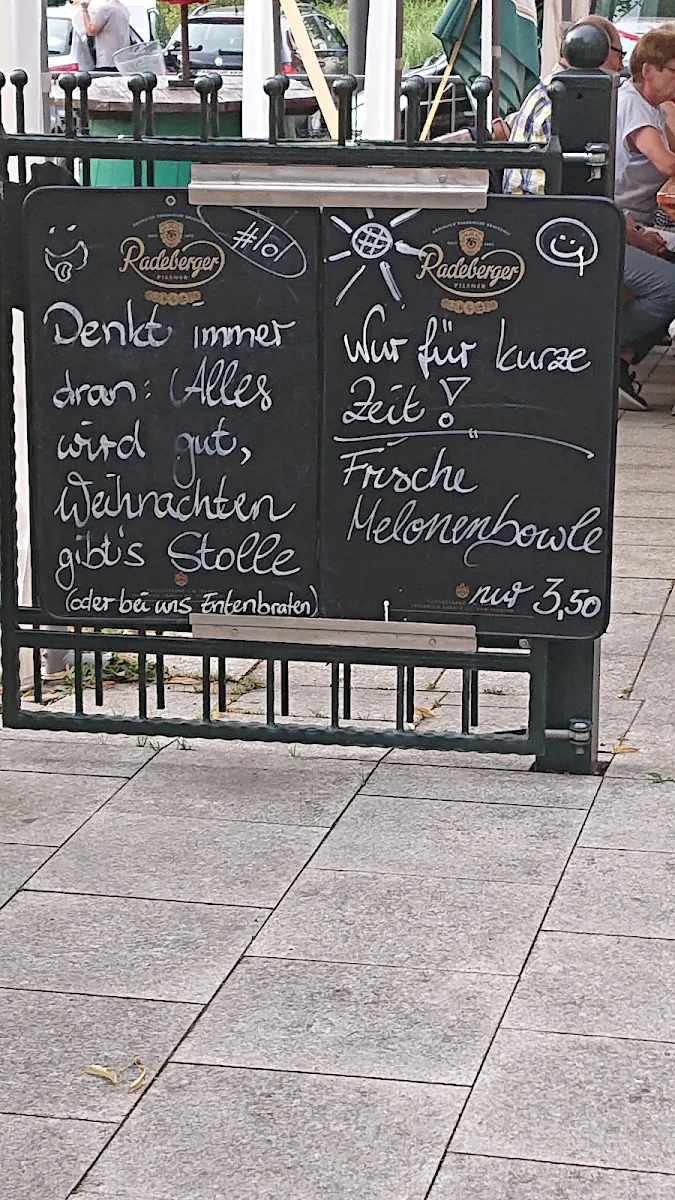 #lol
Radeberger
PILSNER
Denkt immer
dran: Alles
wird gut,
Weihnachten
gibt's Stolle
(oder bei uns Entenbraten)
Radeberger
PILSNER
Nur für kurze
Zeit!
Frische
Melonenbowle
nur 3,50